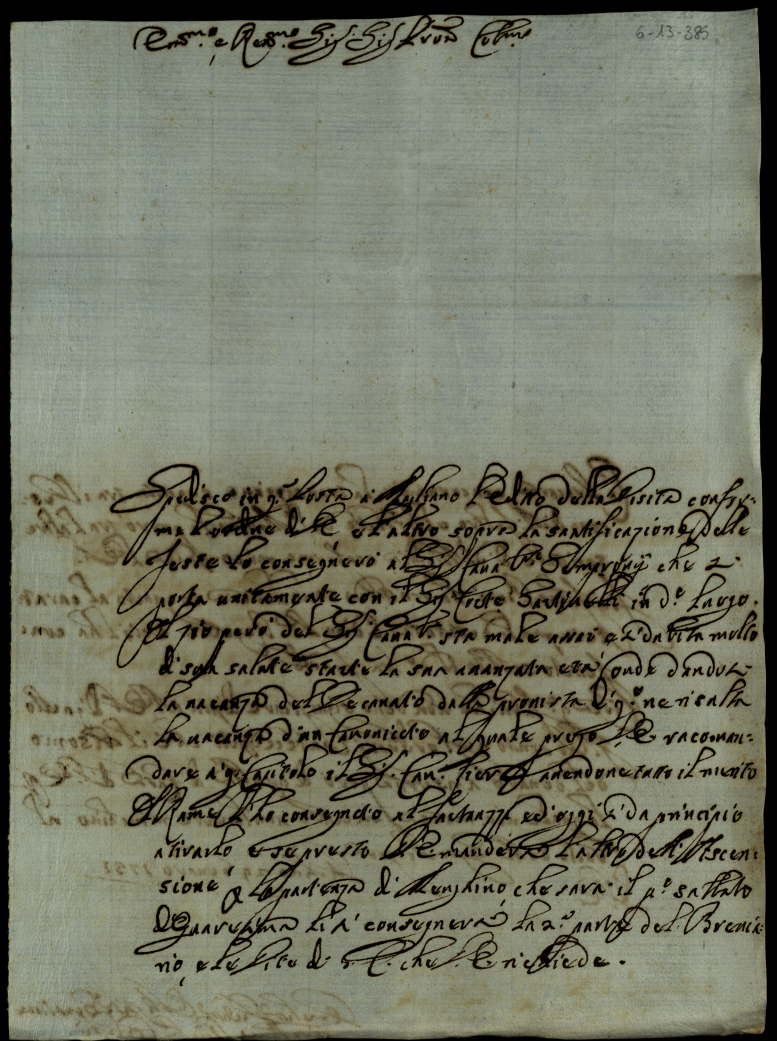 Em.mo e Rev.mo Sig. Sig. Pron Col.mo
6-13-385
Spedisco in q.ta Posta a Magliano l'Editto della Visita confor=
me l'ordine di V.E. e l'altro sopra la santificazione delle
feste lo consegnerò al Sig. Cana.co Sempronij che si
porta unitamente con il Sig. Co: in d.o luogo.
Il Zio però del Sig. Cana.co sta male assai e si dubita molto
di sua salute stante la sua avanzata età, onde dandosi
la vacanza del Decanato dalla provista di q.o ne risulta
la vacanza d'un Canonicato al quale prego V.E. racoman=
dare a q.o Capitolo il Sig. Can. Pier avendone tutto il merito
Il Rame l'ho consegnato al ed oggi si dà principio
a tirarlo e se presto V.E. manderà l'altro dell'Ascen=
sione, p la partenza di Menghino che sarà il p.o sabbato
di Quaresima li si consegnerà la 2.a parte del Brevia=
rio, e le Vite di che V.E. richiede.